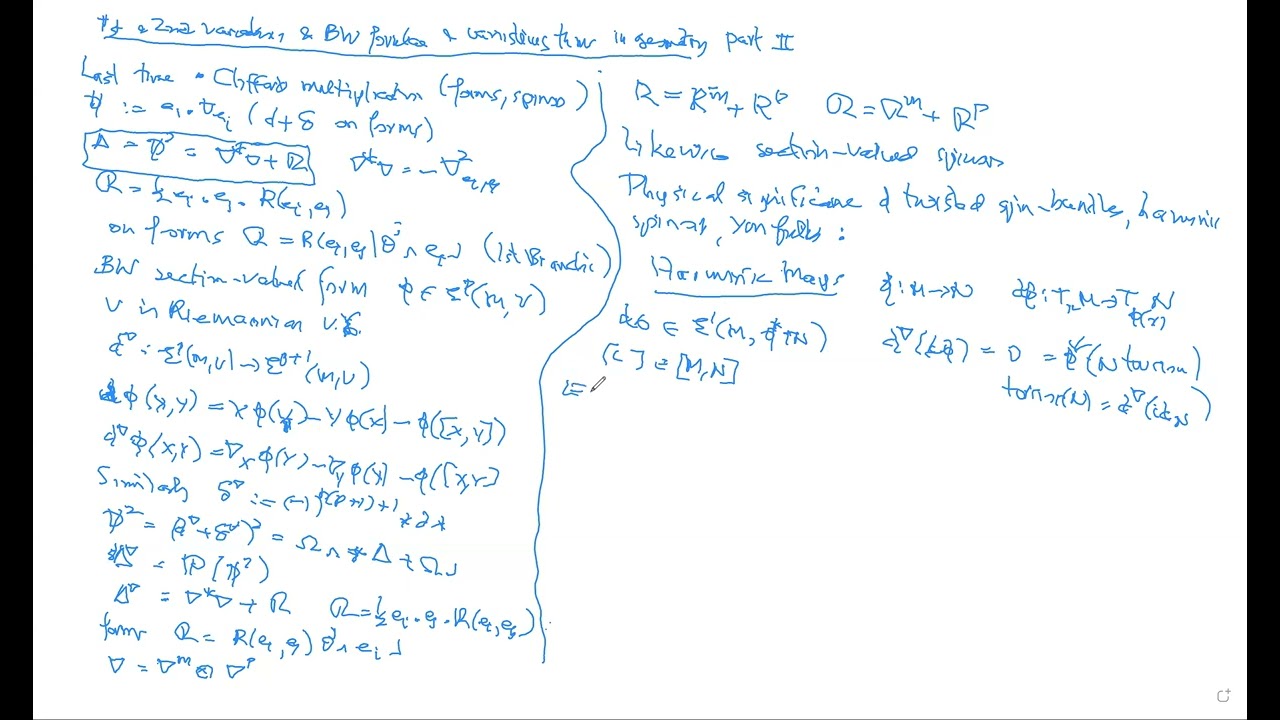 1st & 2nd variations & BW formulae & vanishing thms in geometry part II
Last time • Clifford multiplication (forms, spinors)
D̸ := e_i · ∇_{e_i} (d + δ on forms)
Δ = D̸² = ∇*∇ + R   ∇*∇ = -∇²_{e_i,e_i}
R = ½ e_i · e_j · R(e_i, e_j)
on forms R = R(e_i, e_j) θ^j ∧ e_i ⌟ (1st Bianchi)
BW section-valued form φ ∈ Ξ^p(M, V)
V is Riemannian v.b.
d^∇ : Ξ^p(M, V) → Ξ^{p+1}(M, V)
dφ(X, Y) = Xφ(Y) - Yφ(X) - φ([X, Y])
d^∇φ(X, Y) = ∇_X φ(Y) - ∇_Y φ(X) - φ([X, Y]
Similarly δ^∇ := (-)^{p(p+1)+1} * d *
D̸² = (d^∇ + δ^∇)² = Ω ∧ + Δ + Ω ⌟
Δ^∇ = P(D̸²)
Δ^∇ = ∇*∇ + R   R = ½ e_i · e_j · R(e_i, e_j)
forms R = R(e_i, e_j) θ^j ∧ e_i ⌟
∇ = ∇^M ⊗ ∇^P
R = R^M + R^P   R = R^M + R^P
Likewise section-valued spinors
Physical significance of twisted spin-bundles, harmonic
spinors, YM fields :
Harmonic Maps   φ : M → N   dφ : T_x M → T_{φ(x)} N
dφ ∈ Ξ¹(M, φ*TN)   d^∇(dφ) = 0 = φ*(N torsion)
[C] ∈ [M, N]   torsion(N) = d^∇(id_N)
E